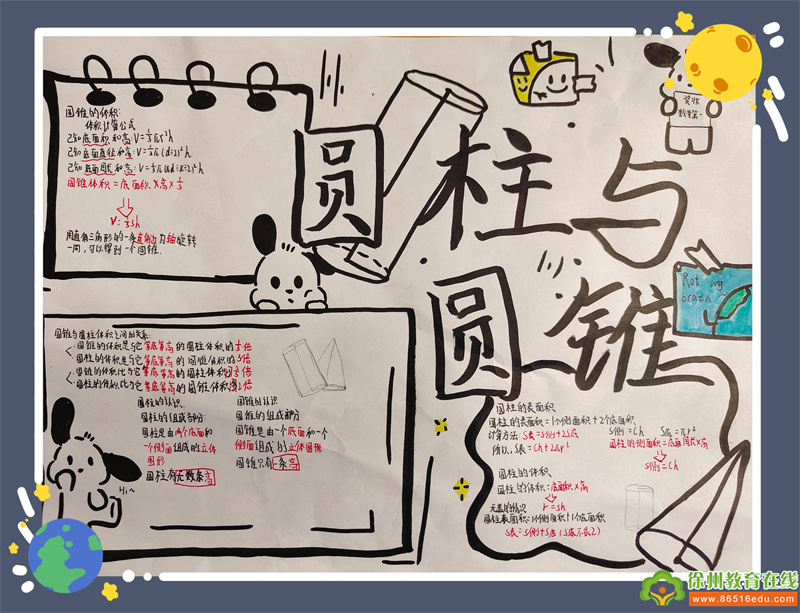 圆柱与
圆锥
奖状
数学第一
Rot my
brain~
圆锥的体积:
体积计算公式
已知底面积和高:V=⅓πr²h
已知底面直径和高:V=⅓π(d÷2)²h
已知底面周长和高:V=⅓π(d÷π÷2)²h
圆锥体积=底面积×高×⅓
V=⅓sh
用直角三角形的一条直角边为轴旋转
一周,可以得到一个圆锥.
圆锥与圆柱体积之间的关系:
圆锥的体积是与它等底等高的圆柱体积的⅓倍
圆柱的体积是与它等底等高的圆锥体积的3倍
圆锥的体积比与它等底等高的圆柱体积
圆柱的体积比与它等底等高的圆锥体积多2倍
圆柱的认识
圆柱的组成部分:
圆柱是由两个底面和
一个侧面组成的立体
图形
圆柱有无数条高
圆锥的认识
圆锥的组成部分
圆锥是由一个底面和一个
侧面组成的立体图形
圆锥只有一条高
Hi~
圆柱的表面积
圆柱的表面积=1个侧面积+2个底面积
计算方法:S表=S侧+2S底 S侧=Ch S底=πr²
所以,S表=Ch+2πr²
圆柱的侧面积=底面周长×高
S侧=Ch
圆柱的体积
圆柱的体积=底面积×高
V=sh
无盖的情况
圆柱表面积=1个侧面积+1个底面积
S表=S侧+S底(S底不乘2)
徐州教育在线
www.86516edu.com